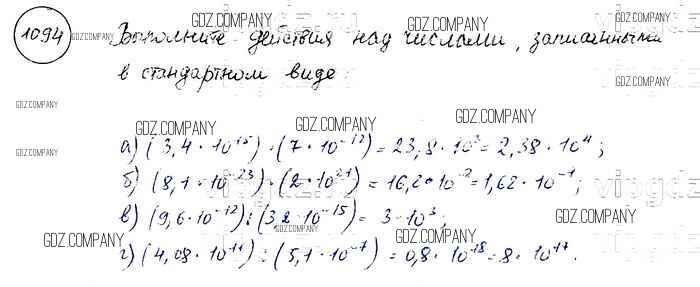 1094 Выполните действия над числами, записанными
в стандартном виде:
а) (3,4 · 10^15) · (7 · 10^-12) = 23,8 · 10^3 = 2,38 · 10^4;
б) (8,1 · 10^-23) · (2 · 10^21) = 16,2 · 10^-2 = 1,62 · 10^-1;
в) (9,6 · 10^-12) : (3,2 · 10^-15) = 3 · 10^3;
г) (4,08 · 10^11) : (5,1 · 10^-7) = 0,8 · 10^18 = 8 · 10^17.
GDZ.COMPANY
GDZ.COMPANY
GDZ.COMPANY
GDZ.COMPANY
GDZ.COMPANY
GDZ.COMPANY
GDZ.COMPANY
GDZ.COMPANY
GDZ.COMPANY
GDZ.COMPANY
GDZ.COMPANY
GDZ.COMPANY
GDZ.COMPANY